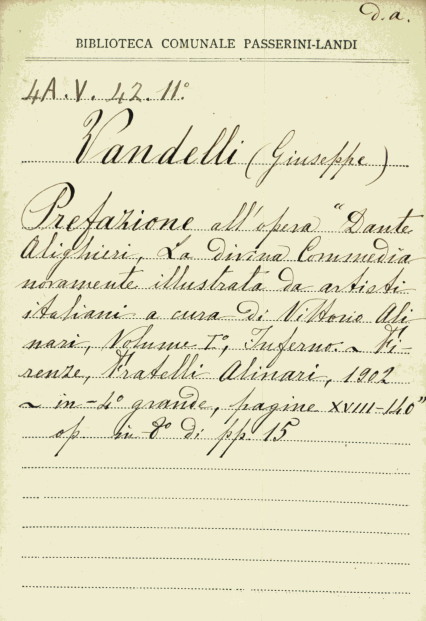 d.a.
BIBLIOTECA COMUNALE PASSERINI-LANDI
4A.V. 42. 11º
Vandelli (Giuseppe)
Prefazione all'opera "Dante
Alighieri, La divina Commedia
novamente illustrata da artisti
italiani a cura di Vittorio Ali
nari, Volume Iº, Inferno. - Fi-
renze, Fratelli Alinari, 1902
- in-4º grande, pagine XVIII-140"
op in 8º di pp. 15